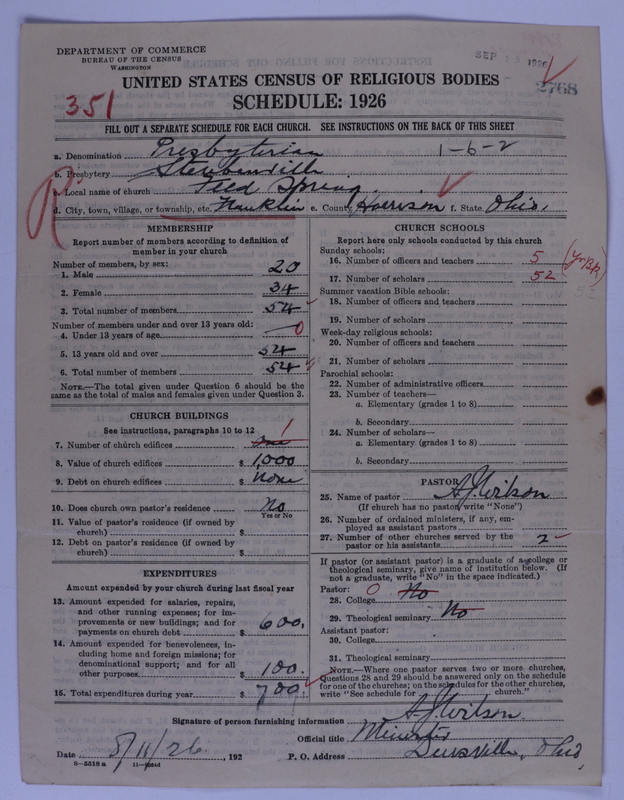 DEPARTMENT OF COMMERCE
BUREAU OF THE CENSUS
WASHINGTON
SEP 1926
2768
351
UNITED STATES CENSUS OF RELIGIOUS BODIES
SCHEDULE: 1926
FILL OUT A SEPARATE SCHEDULE FOR EACH CHURCH. SEE INSTRUCTIONS ON THE BACK OF THIS SHEET
a. Denomination Presbyterian 1-6-2
b. Presbytery Steubenville
c. Local name of church Feed Spring
d. City, town, village, or township, etc. Franklin e. County Harrison f. State Ohio.
MEMBERSHIP
Report number of members according to definition of member in your church
Number of members, by sex:
1. Male 20
2. Female 34
3. Total number of members 54
Number of members under and over 13 years old:
4. Under 13 years of age 0
5. 13 years old and over 54
6. Total number of members 54
NOTE.—The total given under Question 6 should be the same as the total of males and females given under Question 3.
CHURCH BUILDINGS
See instructions, paragraphs 10 to 12
7. Number of church edifices one 1
8. Value of church edifices $ 1,000
9. Debt on church edifices $ none
10. Does church own pastor's residence No
Yes or No
11. Value of pastor's residence (if owned by church) $
12. Debt on pastor's residence (if owned by church) $
EXPENDITURES
Amount expended by your church during last fiscal year
13. Amount expended for salaries, repairs, and other running expenses; for improvements or new buildings; and for payments on church debt $ 600.
14. Amount expended for benevolences, including home and foreign missions; for denominational support; and for all other purposes $ 100.
15. Total expenditures during year $ 700.
CHURCH SCHOOLS
Report here only schools conducted by this church
Sunday schools:
16. Number of officers and teachers 5
17. Number of scholars 52
Summer vacation Bible schools:
18. Number of officers and teachers
19. Number of scholars
Week-day religious schools:
20. Number of officers and teachers
21. Number of scholars
Parochial schools:
22. Number of administrative officers
23. Number of teachers—
a. Elementary (grades 1 to 8)
b. Secondary
24. Number of scholars—
a. Elementary (grades 1 to 8)
b. Secondary
PASTOR
25. Name of pastor A. J. Wilson
(If church has no pastor, write "None")
26. Number of ordained ministers, if any, employed as assistant pastors
27. Number of other churches served by the pastor or his assistants 2
If pastor (or assistant pastor) is a graduate of a college or theological seminary, give name of institution below. (If not a graduate, write "No" in the space indicated.)
Pastor: 0
28. College No
29. Theological seminary No
Assistant pastor:
30. College
31. Theological seminary
NOTE.—Where one pastor serves two or more churches, Questions 28 and 29 should be answered only on the schedule for one of the churches; on the schedules for the other churches, write "See schedule for church."
Signature of person furnishing information A. J. Wilson
Official title Minister
Date 8/11/26, 192 P. O. Address Ohio,
8—5518 a